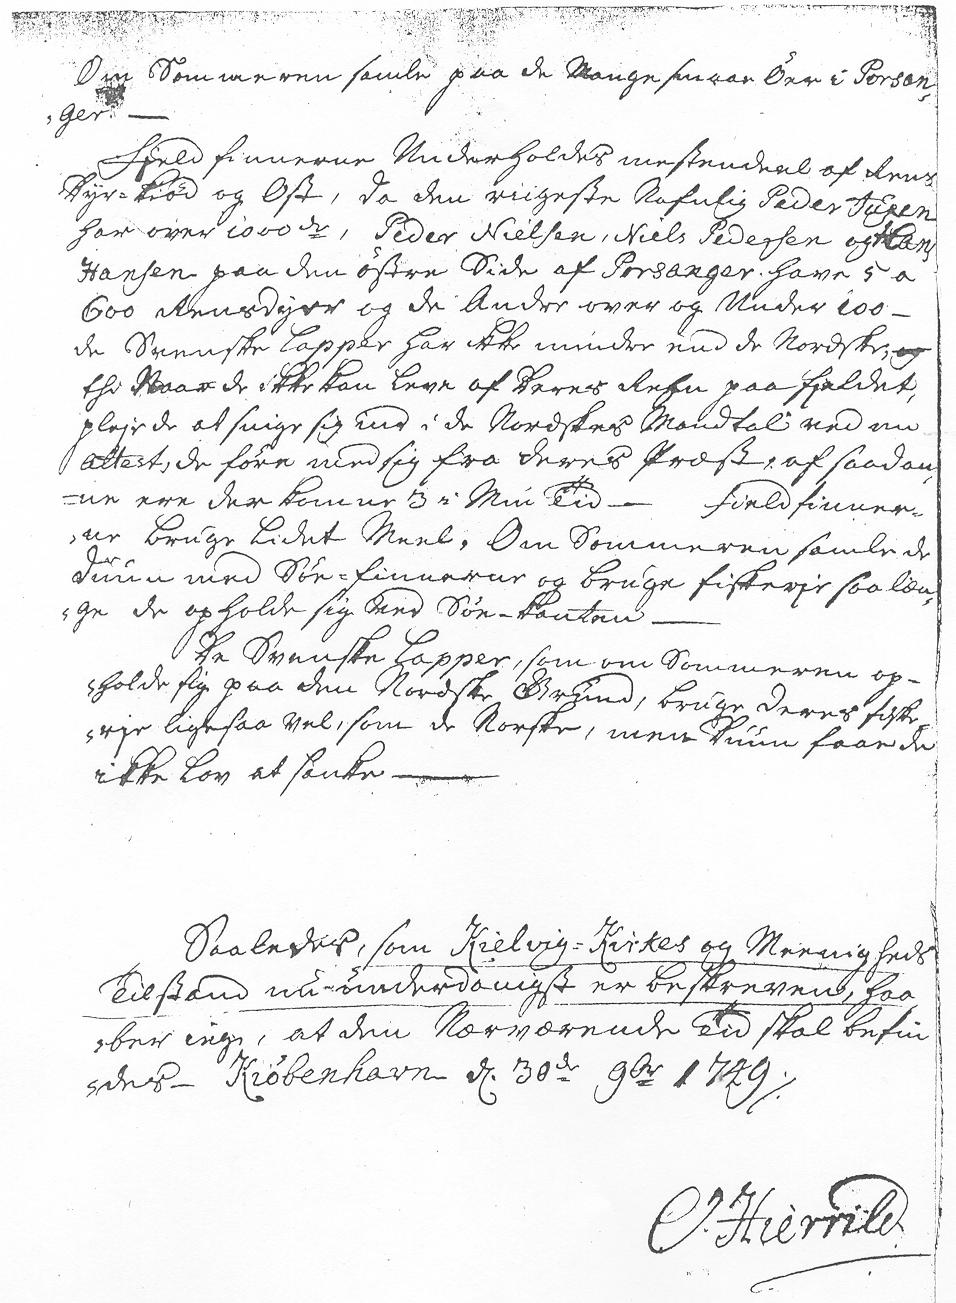 Om Sommeren samle paa de Mange smaae Öer i Porsan,
,ger. —
Fjeld finnerne Underholdes mestendeel af Rens
Dyr=kiød og Ost, da den riigeste Nafnlig Peder
har over 1000de, Peder Nielsen, Niels Pedersen og Hans
Hansen paa den östre Side af Porsanger have 5 a
600 Rensdyer og de Andre over og Under 100 —
de Svenske Lapper har ikke mindre end de Nordske, og
thi Naar de ikke kan leve af deres Reen paa fjeldet,
pleje de at snige sig ind i de Nordskes Mandtal ved en
Attest, de före med sig fra deres Præst, af saadan,
=ne ere der komne 3 i Min Tid — Fieldfinner=
,ne bruge Lidet Meel, Om Sommeren samle de
Duun med Söe=finnerne og bruge fiskerje saa læn,
,ge de opholde sig ved Söe-kanten —
De Svenske Lapper, som om Sommeren op-
,holde sig paa den Nordske Grund, bruge deres fiske,
,rje ligesaa vel, som de Norske, men Duun faae de
ikke Lov at sanke —
Saaledes, som Kielvig=Kirkes og Meenigheds
Tilstand nu underdanigst er beskreven, haa
,ber jeg, at den Nærværende Tid skal befin
,des — Kiöbenhavn d. 30de 9br 1749.
O. Hierrild.